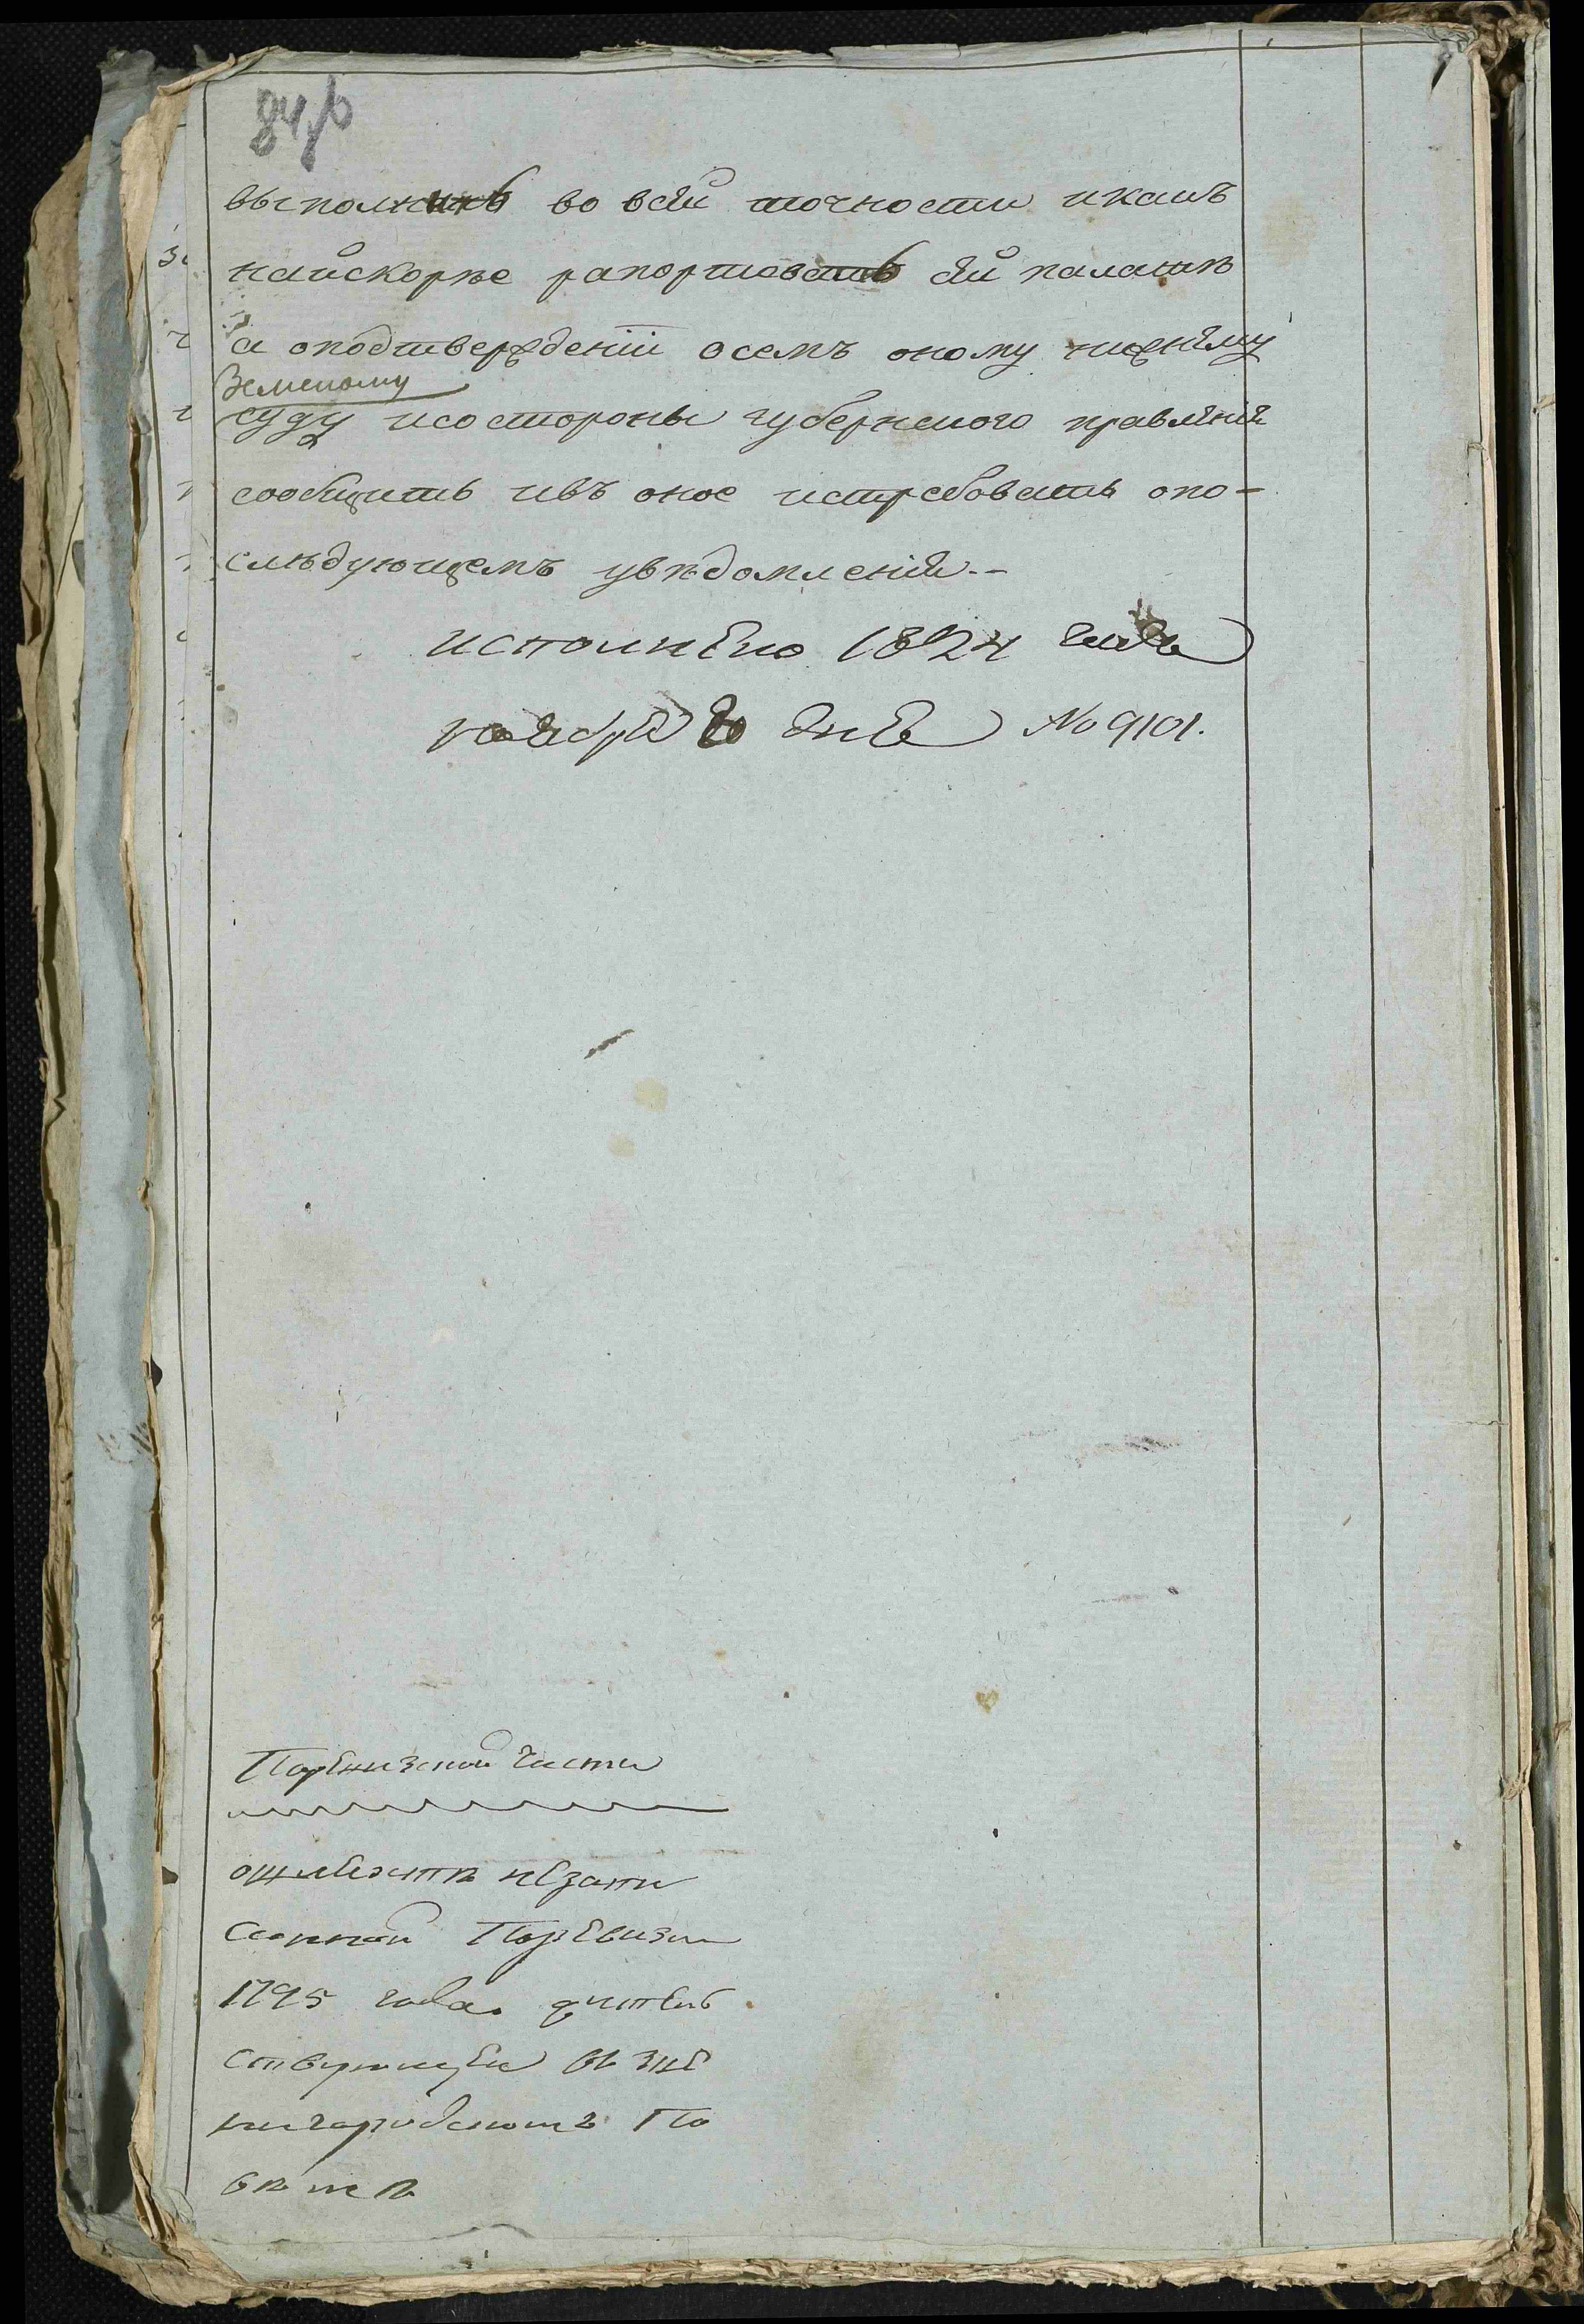 выполнить во всей точности икакъ
найскорѣе рапортовать сей палатѣ
а оподтвержденіи осемъ оному нижнему
Земскому
суду исостороны губернского правленія
сообщить ивъ оное истребовать опо-
слѣдующемъ увѣдомленія --
исполнено 1824 года
ноября 20 дня No 9101.
Поревизской части
незапи
санной Поревизіи
1795 года
ствующей въ Зве
нигородскомъ По
вѣтѣ